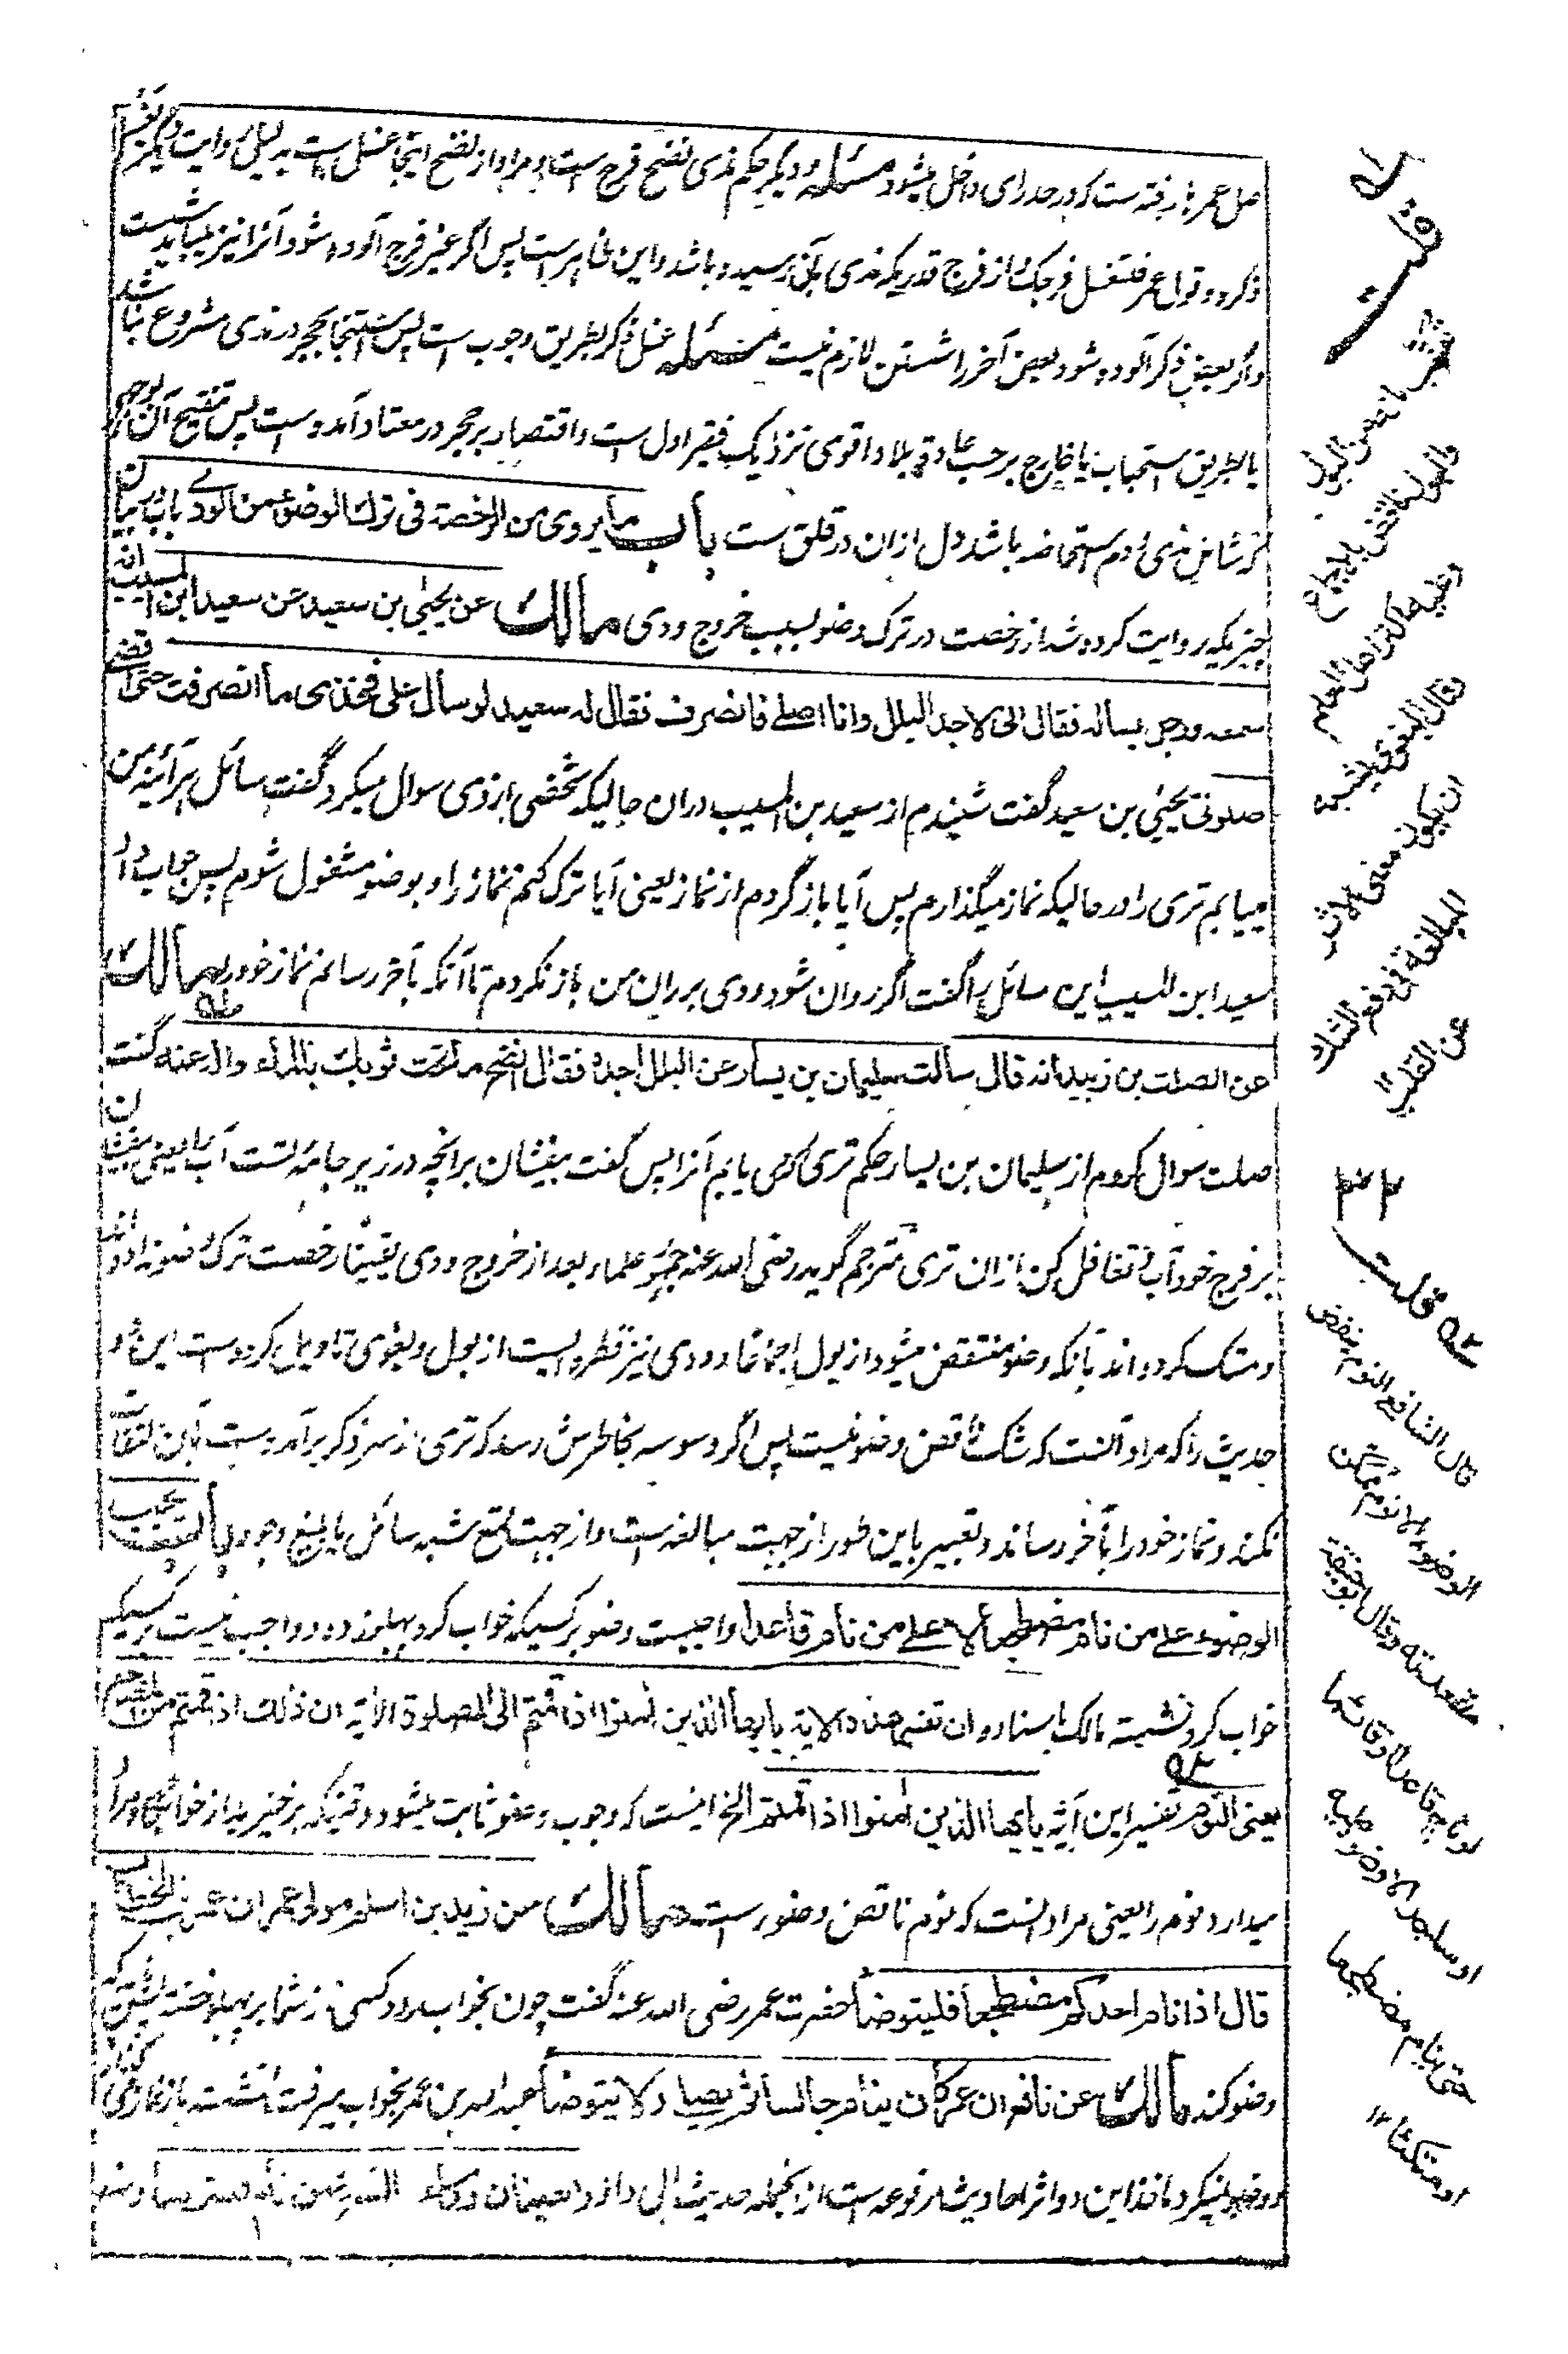 صل عمر بار رفته ست که در حد رای داخل میشود مسئله و دیگر حکم مذی نضح فرج است و مراد از نضح اینجا غسل است بدلیل روایت دیگر
ذکره و قول عمر فلتغسل فرجک از فرج قدریکه مذی بآن رسیده باشد و این ظاهر است پس اگر غیر فرج آلوده شود آنرا نیز میباید شست
و اگر بعض ذکر آلوده شود بعض آخر را شستن لازم نیست مسئله غسل ذکر بطریق وجوب است پس استنجا بحجر در مذی مشروع نباشد
یا بطریق استحباب یا خارج بر حسب عادت بلاد اقوی نزدیک فقیر اول است و اقتصار بر حجر در معتاد آمده است پس تنقیح آن
مذی و دم استحاضه باشد دل ازان در قلق ست باب ما یروی من الرخصة فی ترک الوضوء من الودی باب در بیان
چیزیکه روایت کرده شد از رخصت در ترک وضو بسبب خروج ودی مالک عن یحیی بن سعید عن سعید ابن المسیب انه
سمعه ورجل یساله فقال انی لاجد البلل وانا اصلی فانصرف فقال له سعید لو سال علی فخذی ما انصرفت حتی اقضی
صلوتی یحیی بن سعید گفت شنیدم از سعید بن المسیب دران حالیکه شخصی ازوی سوال میکرد گفت سائل هر آئینه من
مییابم تری را در حالیکه نماز میگذارم پس آیا باز گردم از نماز یعنی آیا ترک کنم نماز را و بوضو مشغول شوم پس جواب داد
سعید ابن المسیب این سائل را گفت اگر روان شود ودی بر ران من باز نگردم تا آنکه بآخر رسانم نماز خود را مالک
عن الصلت بن زیید انه قال سالت سلیمان بن یسار عن البلل اجده فقال انضح ما تحت ثوبک بالماء واله عنه گفت
صلت سوال کردم از سلیمان بن یسار حکم تری که می یابم آنرا پس گفت بیفشان بر آنچه در زیر جامه تست آب را یعنی بیفشان
بر فرج خود آب و تغافل کن ازان تری مترجم گوید رضی الله عنه جمهور علماء بعد از خروج ودی یقینا رخصت ترک وضو نداده اند
و تمسک کرده اند بآنکه وضو منتقض میشود از بول اجماعا و ودی نیز قطره ایست از بول و بغوی تاویل کرده است این دو
حدیث را که مراد آنست که شک ناقض وضو نیست پس اگر وسوسه بخاطرش رسد که تری از سر ذکر برآمده است بآن التفات
نکند و نماز خود را بآخر رساند و تعبیر باین طور از جهت مبالغه است و از جهت قمع شبه سائل بابلغ وجوه باب یجب
الوضوء علی من نام مضطجعا لا علی من نام قاعدا واجبست وضو بر کسیکه خواب کرد پهلو زده و واجب نیست بر کسیکه
خواب کرد نشسته مالک باسناده ان تفسیر هذه الایة یایها الذین امنوا اذا قمتم الی الصلوة الآیة ان ذلک اذا قمتم من المضاجع
یعنی النوم تفسیر این آیة یایها الذین امنوا اذا قمتم الخ اینست که وجوب وضو ثابت میشود وقتیکه بر خیزید از خوابگاه مراد
میدارد نوم را یعنی مراد آنست که نوم ناقض وضو است مالک عن زید بن اسلم مولی عمر ان عمر بن الخطاب
قال اذا نام احدکم مضطجعا فلیتوضأ حضرت عمر رضی الله عنه گفت چون بخواب رود کسی از شما بر پهلو خفته
وضو کند مالک عن نافع ان ابن عمر کان ینام جالسا ثم یصلی ولا یتوضأ عبد الله بن عمر بخواب میرفت نشسته باز نماز می
و وضو نمیکرد ماخذ این دو اثر احادیث مرفوعه است از انجمله حدیث ابی داود
قوله
قالوا
وعلیه اکثر اهل العلم
فقال البغوی یشبه
ان یکون معنی الاثر
المبالغة فی دفع الشک
عن القلب ۱۲
۳۲
۵۲ قلت
قال الشافعی النوم ینقض
الوضوء الا نوم ممکن
مقعدته وقال ابوحنیفة
لو نام قاعدا او قائما
او ساجدا لا وضوء علیه
حتی ینام مضطجعا
او متکئا ۱۲